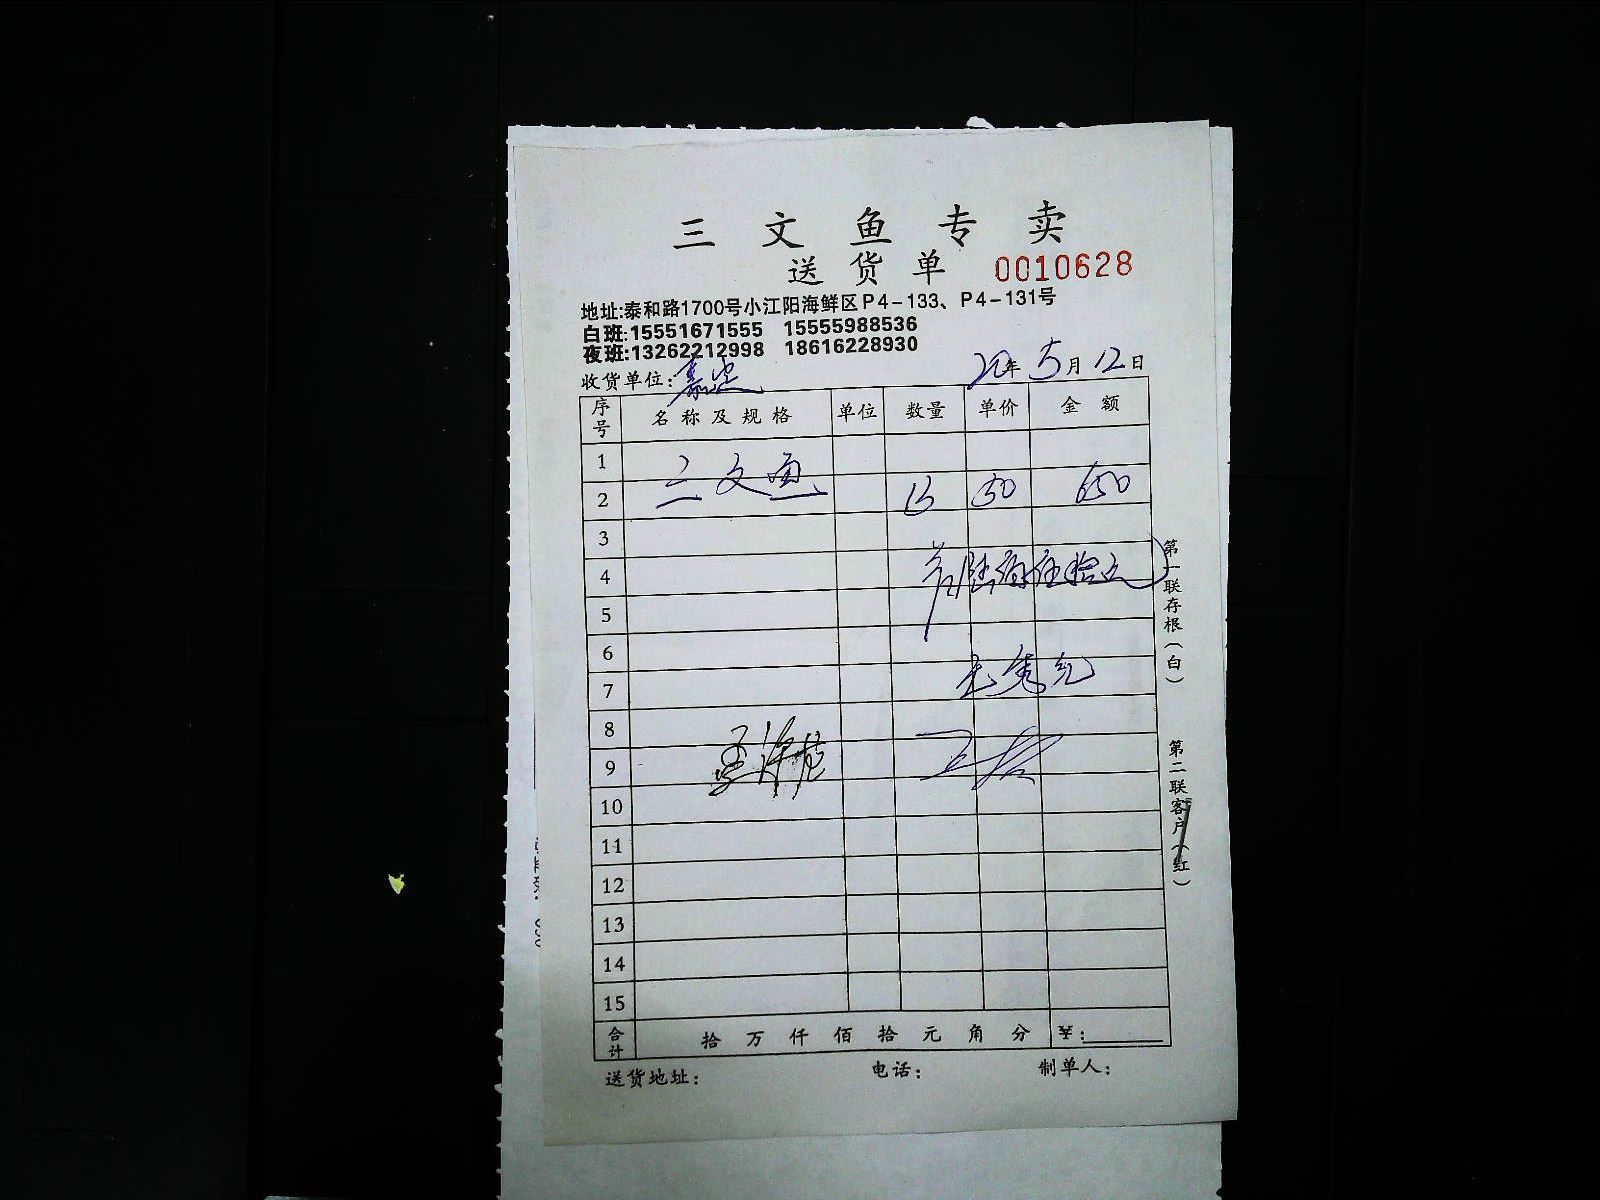 三文鱼专卖
送货单 0010628
地址:泰和路1700号小江阳海鲜区P4-133、P4-131号
白班:15551671555 15555988536
夜班:13262212998 18616228930
收货单位: 20年5月12日
序号 名称及规格 单位 数量 单价 金额
1
2 三文鱼 13 50 650
3
4
5
6
7
8
9
10
11
12
13
14
15
合计 拾万仟佰拾元角分 ¥:
送货地址: 电话: 制单人:
第一联存根(白)
第二联客户(红)